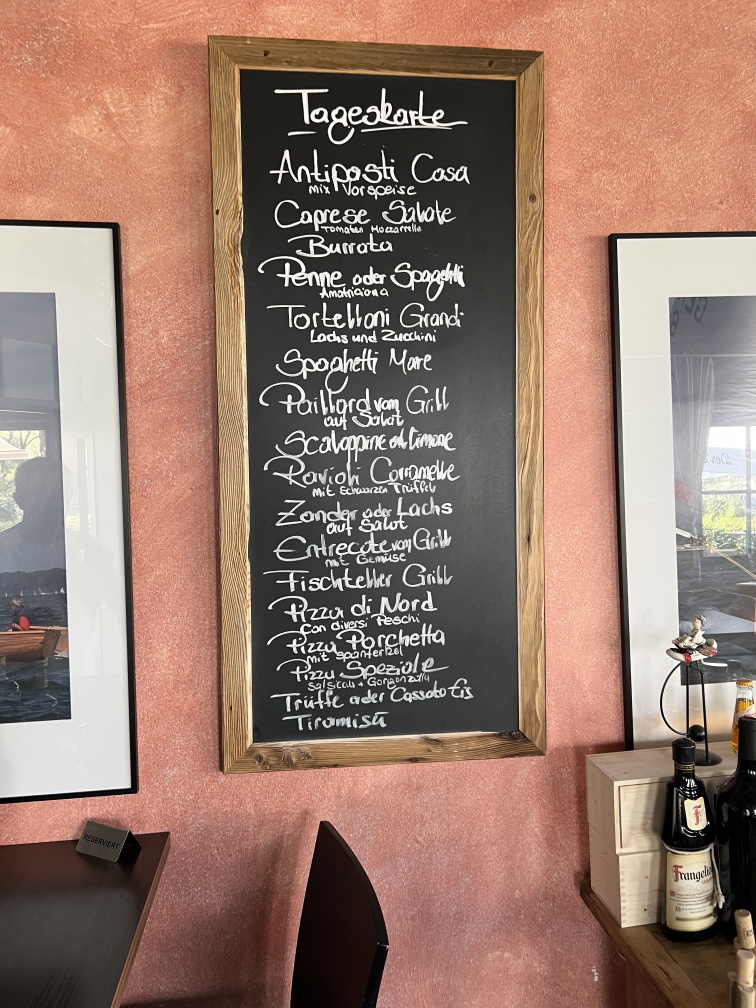 Tageskarte
Antipasti Casa
mix Vorspeise
Caprese Salate
Tomaten Mozzarella
Burrata
Penne oder Spagetti
Amatriciana
Tortelloni Grandi
Lachs und Zucchini
Spaghetti Mare
Paillard vom Grill
auf Salat
Scaloppine al Limone
Ravioli Carramelle
mit Schwarzen Trüffel
Zander oder Lachs
auf Salat
Entrecote vom Grill
mit Gemüse
Fischteller Grill
Pizza di Nord
Con diversi Peschi
Pizza Porchetta
mit Spanferkel
Pizza Speziale
Salsicali + Gorgonzolla
Trüffe oder Cassata Eis
Tiramisu
RESERVIERT
F
Frangelic